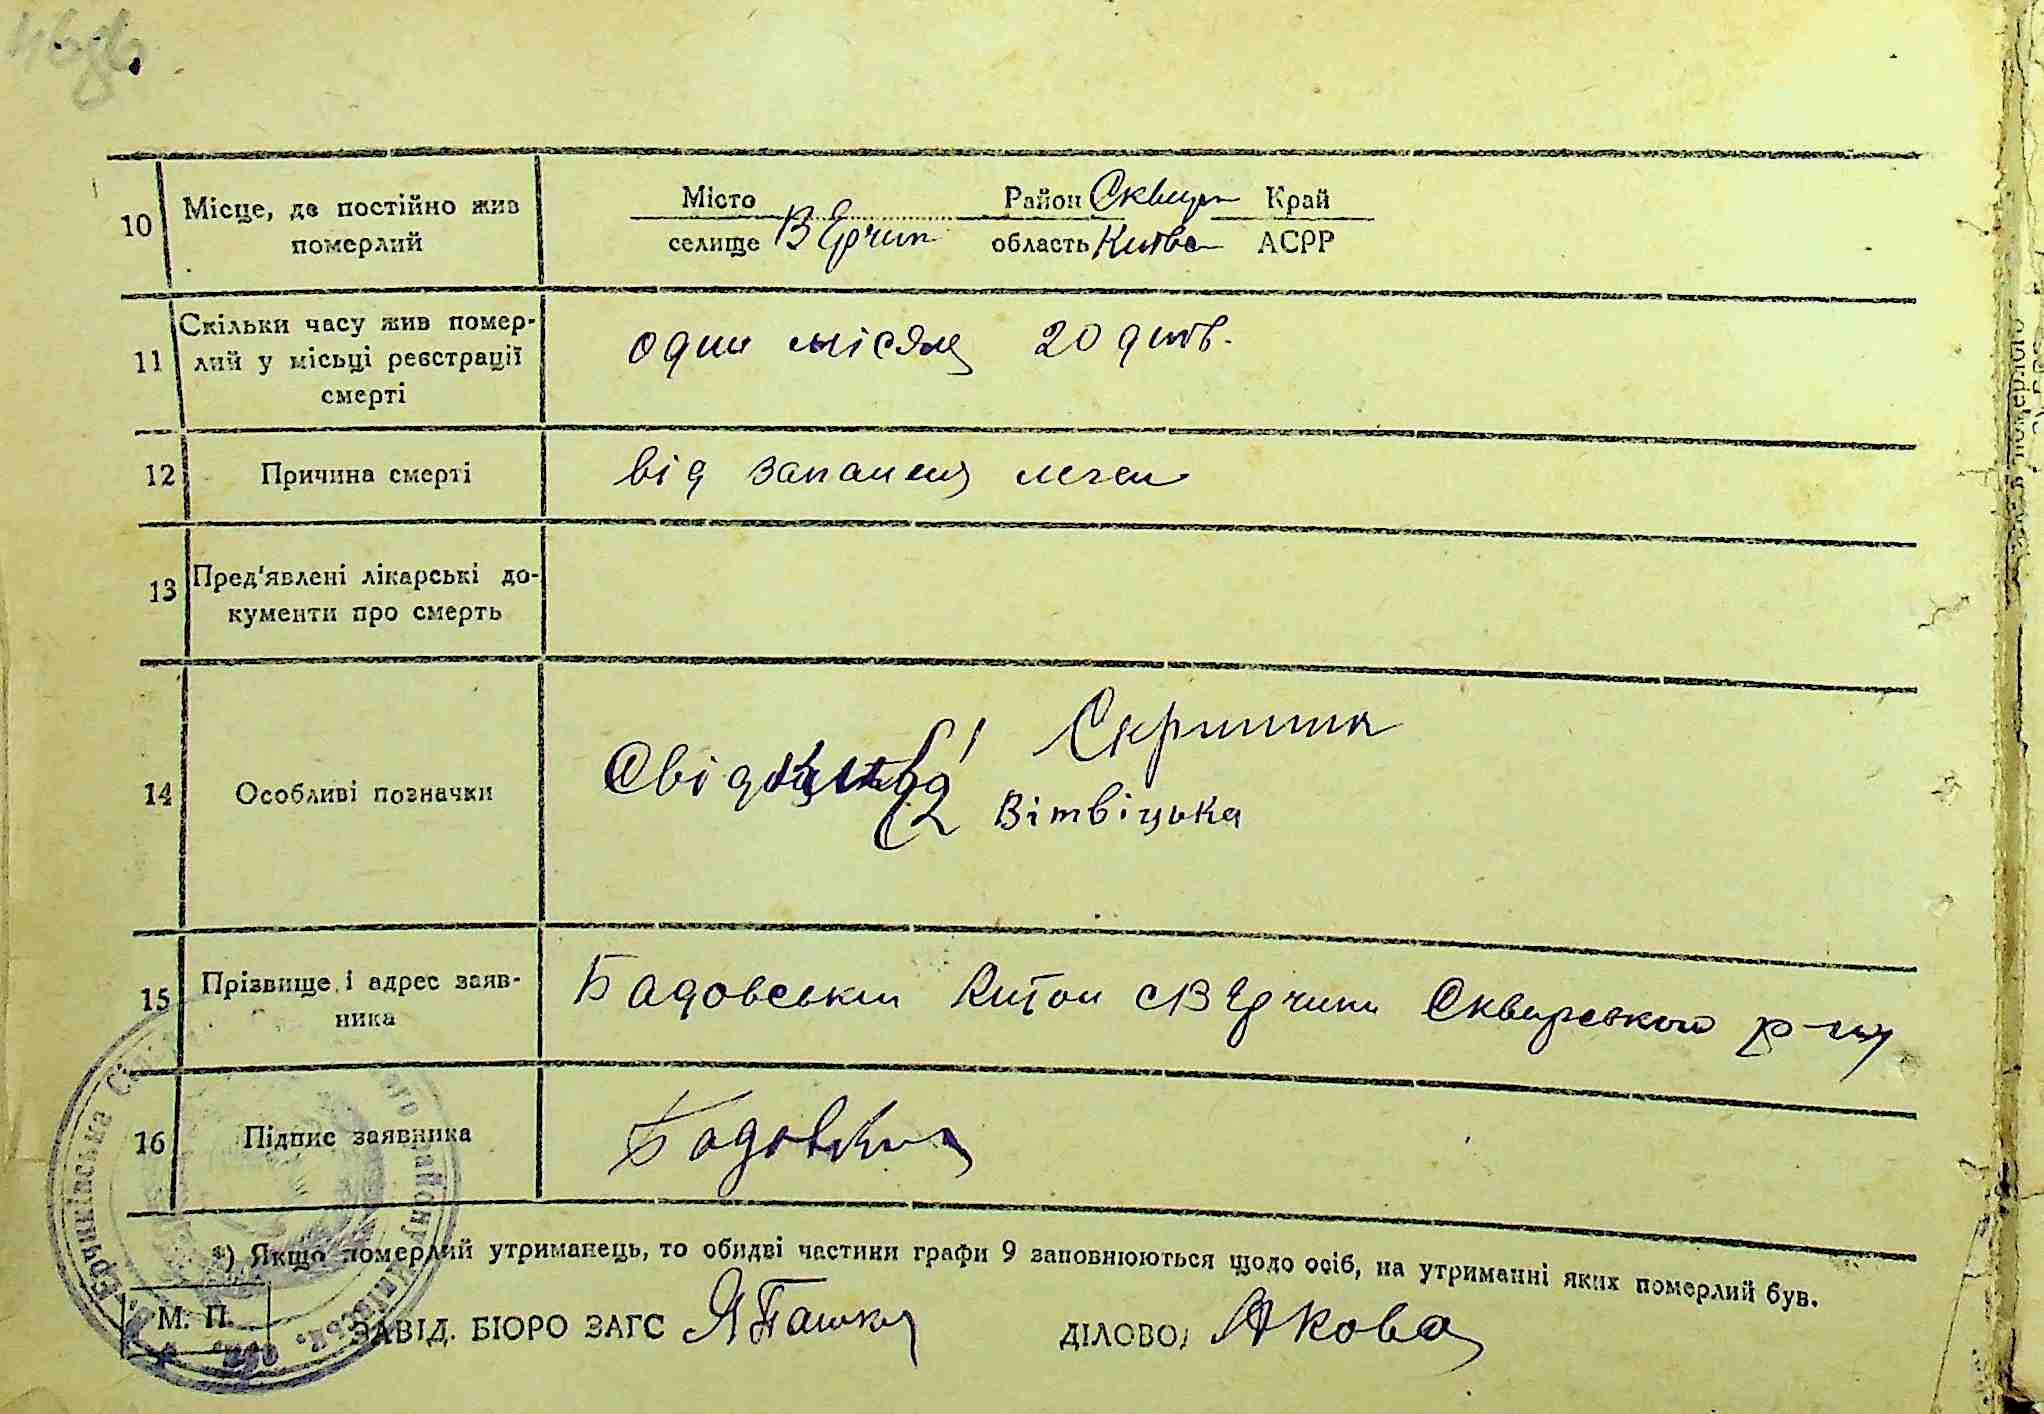 10 Місце, де постійно жив
померлий
Місто Район Сквир Край
селище В Єрчик область Київс АСРР
11 Скільки часу жив помер-
лий у місьці реєстрації
смерті
один місяц 20 днів.
12 Причина смерті
від запаленя леген
13 Пред'явлені лікарські до-
кументи про смерть
14 Особливі позначки
Свідки
1 Скришка
2 Вітвіцька
15 Прізвище і адрес заяв-
ника
Бадовський Антон с В Єрчики Сквирського р-ну
16 Підпис заявника
Бадовски
*) Якщо померлий утриманець, то обидві частини графи 9 заповнюються щодо осіб, на утриманні яких померлий був.
М. П. ЗАВІД. БЮРО ЗАГС ЯПашк ДІЛОВОД Якова